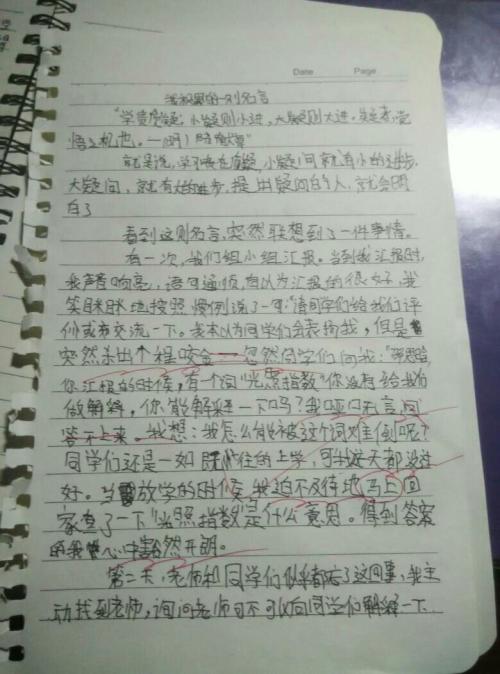 Date Page
给我启发的一则名言
“学贵质疑，小疑则小进，大疑则大进。疑者，觉
悟之机也。—(明)陈献章”
就是说，学不快在质疑，小疑问就有小的进步，
大疑问，就有大的进步，提出疑问的人，就会明
白了
看到这则名言，突然联想到了一件事情。
有一次，我们组小组汇报。当到我汇报时，
我声音响亮，语句通顺，自以为汇报的很好，我
笑眯眯地按照惯例说了一句：“请同学们给我们评
价或者交流一下。我本以为同学们会表扬我，但是
突然杀出个程咬金——忽然同学们问我：
你汇报的时候，有一个词“光照指数”你没有给我们
做解释，你能解释一下吗？我哑口无言，回
答不上来。我想：我怎么能被这个词难倒呢？
同学们还是一如既往的上学，可我这天都没过
好。当放学的时候，我迫不及待地马上回
家查了一下“光照指数”是什么意思。得到答案
的我心中豁然开朗。
第二天，老师和同学们似乎都忘了这回事，我主
动找到老师，询问老师可不可以向同学们解释一下